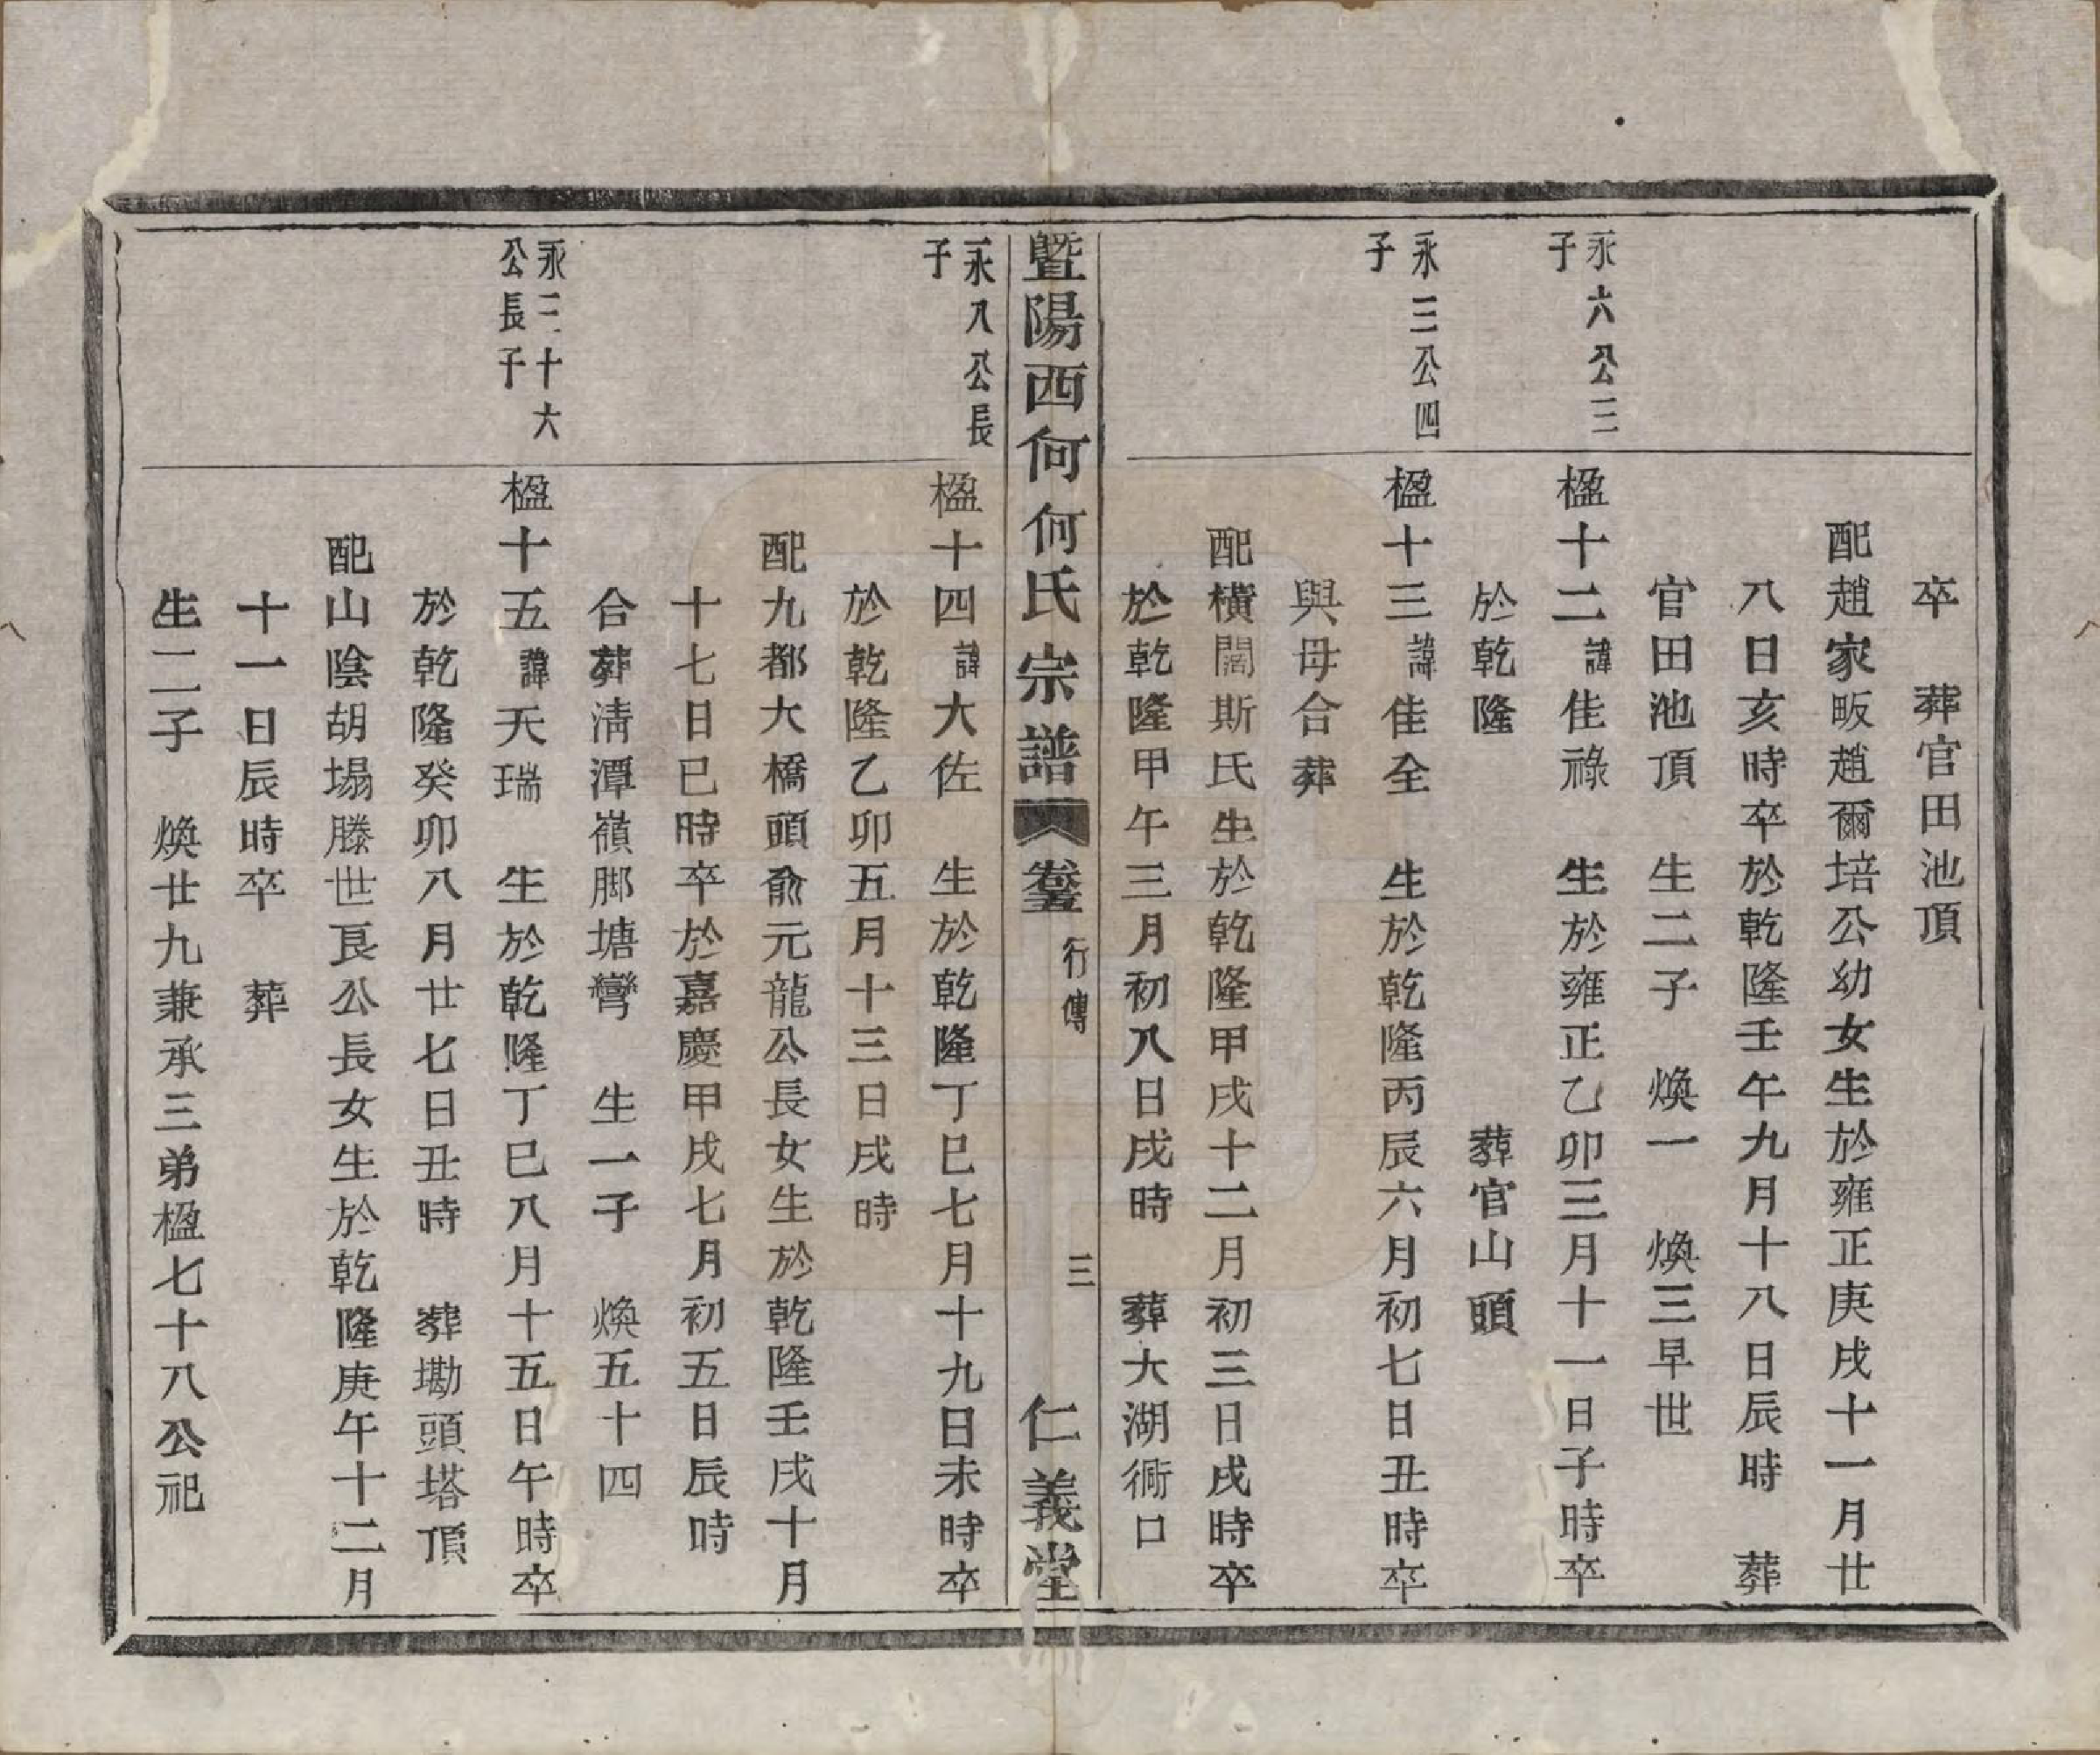 卒　葬官田池頂
配趙家畈趙爾培公幼女生於雍正庚戌十一月廿
八日亥時卒於乾隆壬午九月十八日辰時　葬
官田池頂　生二子　煥一　煥三早世
永六公三
子
楹十二諱佳祿　生於雍正乙卯三月十一日子時卒
於乾隆　葬官山頭
永三公四
子
楹十三諱佳全　生於乾隆丙辰六月初七日丑時卒
與母合葬
配橫闊斯氏生於乾隆甲戌十二月初三日戌時卒
於乾隆甲午三月初八日戌時　葬大湖衕口
暨陽西何何氏宗譜　卷五　行傳　三　仁義堂
永八公長
子
楹十四諱大佐　生於乾隆丁巳七月十九日未時卒
於乾隆乙卯五月十三日戌時
配九都大橋頭俞元龍公長女生於乾隆壬戌十月
十七日巳時卒於嘉慶甲戌七月初五日辰時
合葬淸潭嶺脚塘灣　生一子　煥五十四
永二十六
公長子
楹十五諱天瑞　生於乾隆丁巳八月十五日午時卒
於乾隆癸卯八月廿七日丑時　葬墈頭塔頂
配山陰胡塌滕世良公長女生於乾隆庚午十二月
十一日辰時卒　葬
生二子　煥廿九兼承三弟楹七十八公祀